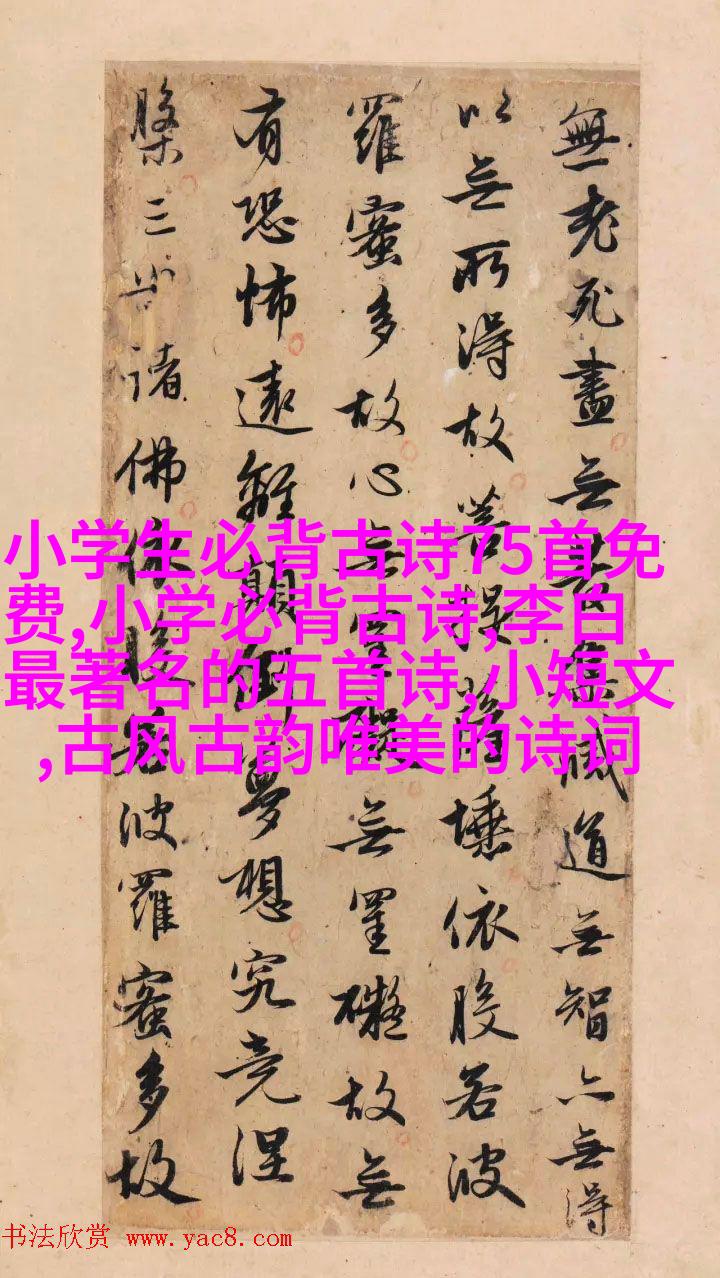 無老死盡無苦集滅道無智亦無得
以無所得故菩提薩埵依般若波
羅蜜多故心無罣礙無罣礙故無
有恐怖遠離顛倒夢想究竟涅
槃三世諸佛依般若波羅蜜多故
小学生必背古诗75首免
费,小学必背古诗,李白
最著名的五首诗,小短文
,古风古韵唯美的诗词
书法欣赏 www.yac8.com